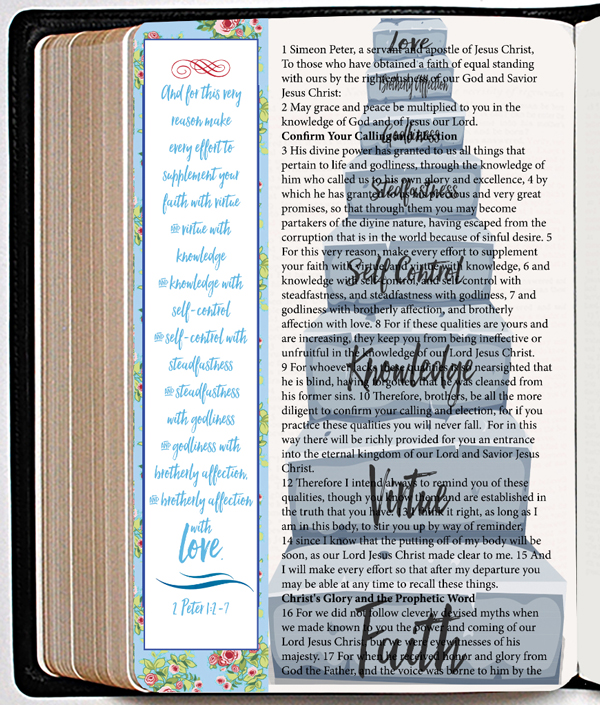 And for this very
reason make
every effort to
supplement your
faith with virtue
and virtue with
knowledge
and knowledge with
self-control
and self-control with
steadfastness
and steadfastness
with godliness
and godliness with
brotherly affection,
and brotherly affection
with
Love.
2 Peter 1:2-7
Love
Brotherly Affection
Godliness
Stedfastness
Self Control
Knowledge
Virtue
Faith
1 Simeon Peter, a servant and apostle of Jesus Christ,
To those who have obtained a faith of equal standing
with ours by the righteousness of our God and Savior
Jesus Christ:
2 May grace and peace be multiplied to you in the
knowledge of God and of Jesus our Lord.
Confirm Your Calling and Election
3 His divine power has granted to us all things that
pertain to life and godliness, through the knowledge of
him who called us to his own glory and excellence, 4 by
which he has granted to us his precious and very great
promises, so that through them you may become
partakers of the divine nature, having escaped from the
corruption that is in the world because of sinful desire. 5
For this very reason, make every effort to supplement
your faith with virtue, and virtue with knowledge, 6 and
knowledge with self-control, and self-control with
steadfastness, and steadfastness with godliness, 7 and
godliness with brotherly affection, and brotherly
affection with love. 8 For if these qualities are yours and
are increasing, they keep you from being ineffective or
unfruitful in the knowledge of our Lord Jesus Christ.
9 For whoever lacks these qualities is so nearsighted that
he is blind, having forgotten that he was cleansed from
his former sins. 10 Therefore, brothers, be all the more
diligent to confirm your calling and election, for if you
practice these qualities you will never fall. For in this
way there will be richly provided for you an entrance
into the eternal kingdom of our Lord and Savior Jesus
Christ.
12 Therefore I intend always to remind you of these
qualities, though you know them and are established in
the truth that you have. 13 I think it right, as long as I
am in this body, to stir you up by way of reminder,
14 since I know that the putting off of my body will be
soon, as our Lord Jesus Christ made clear to me. 15 And
I will make every effort so that after my departure you
may be able at any time to recall these things.
Christ's Glory and the Prophetic Word
16 For we did not follow cleverly devised myths when
we made known to you the power and coming of our
Lord Jesus Christ, but we were eyewitnesses of his
majesty. 17 For when he received honor and glory from
God the Father, and the voice was borne to him by the